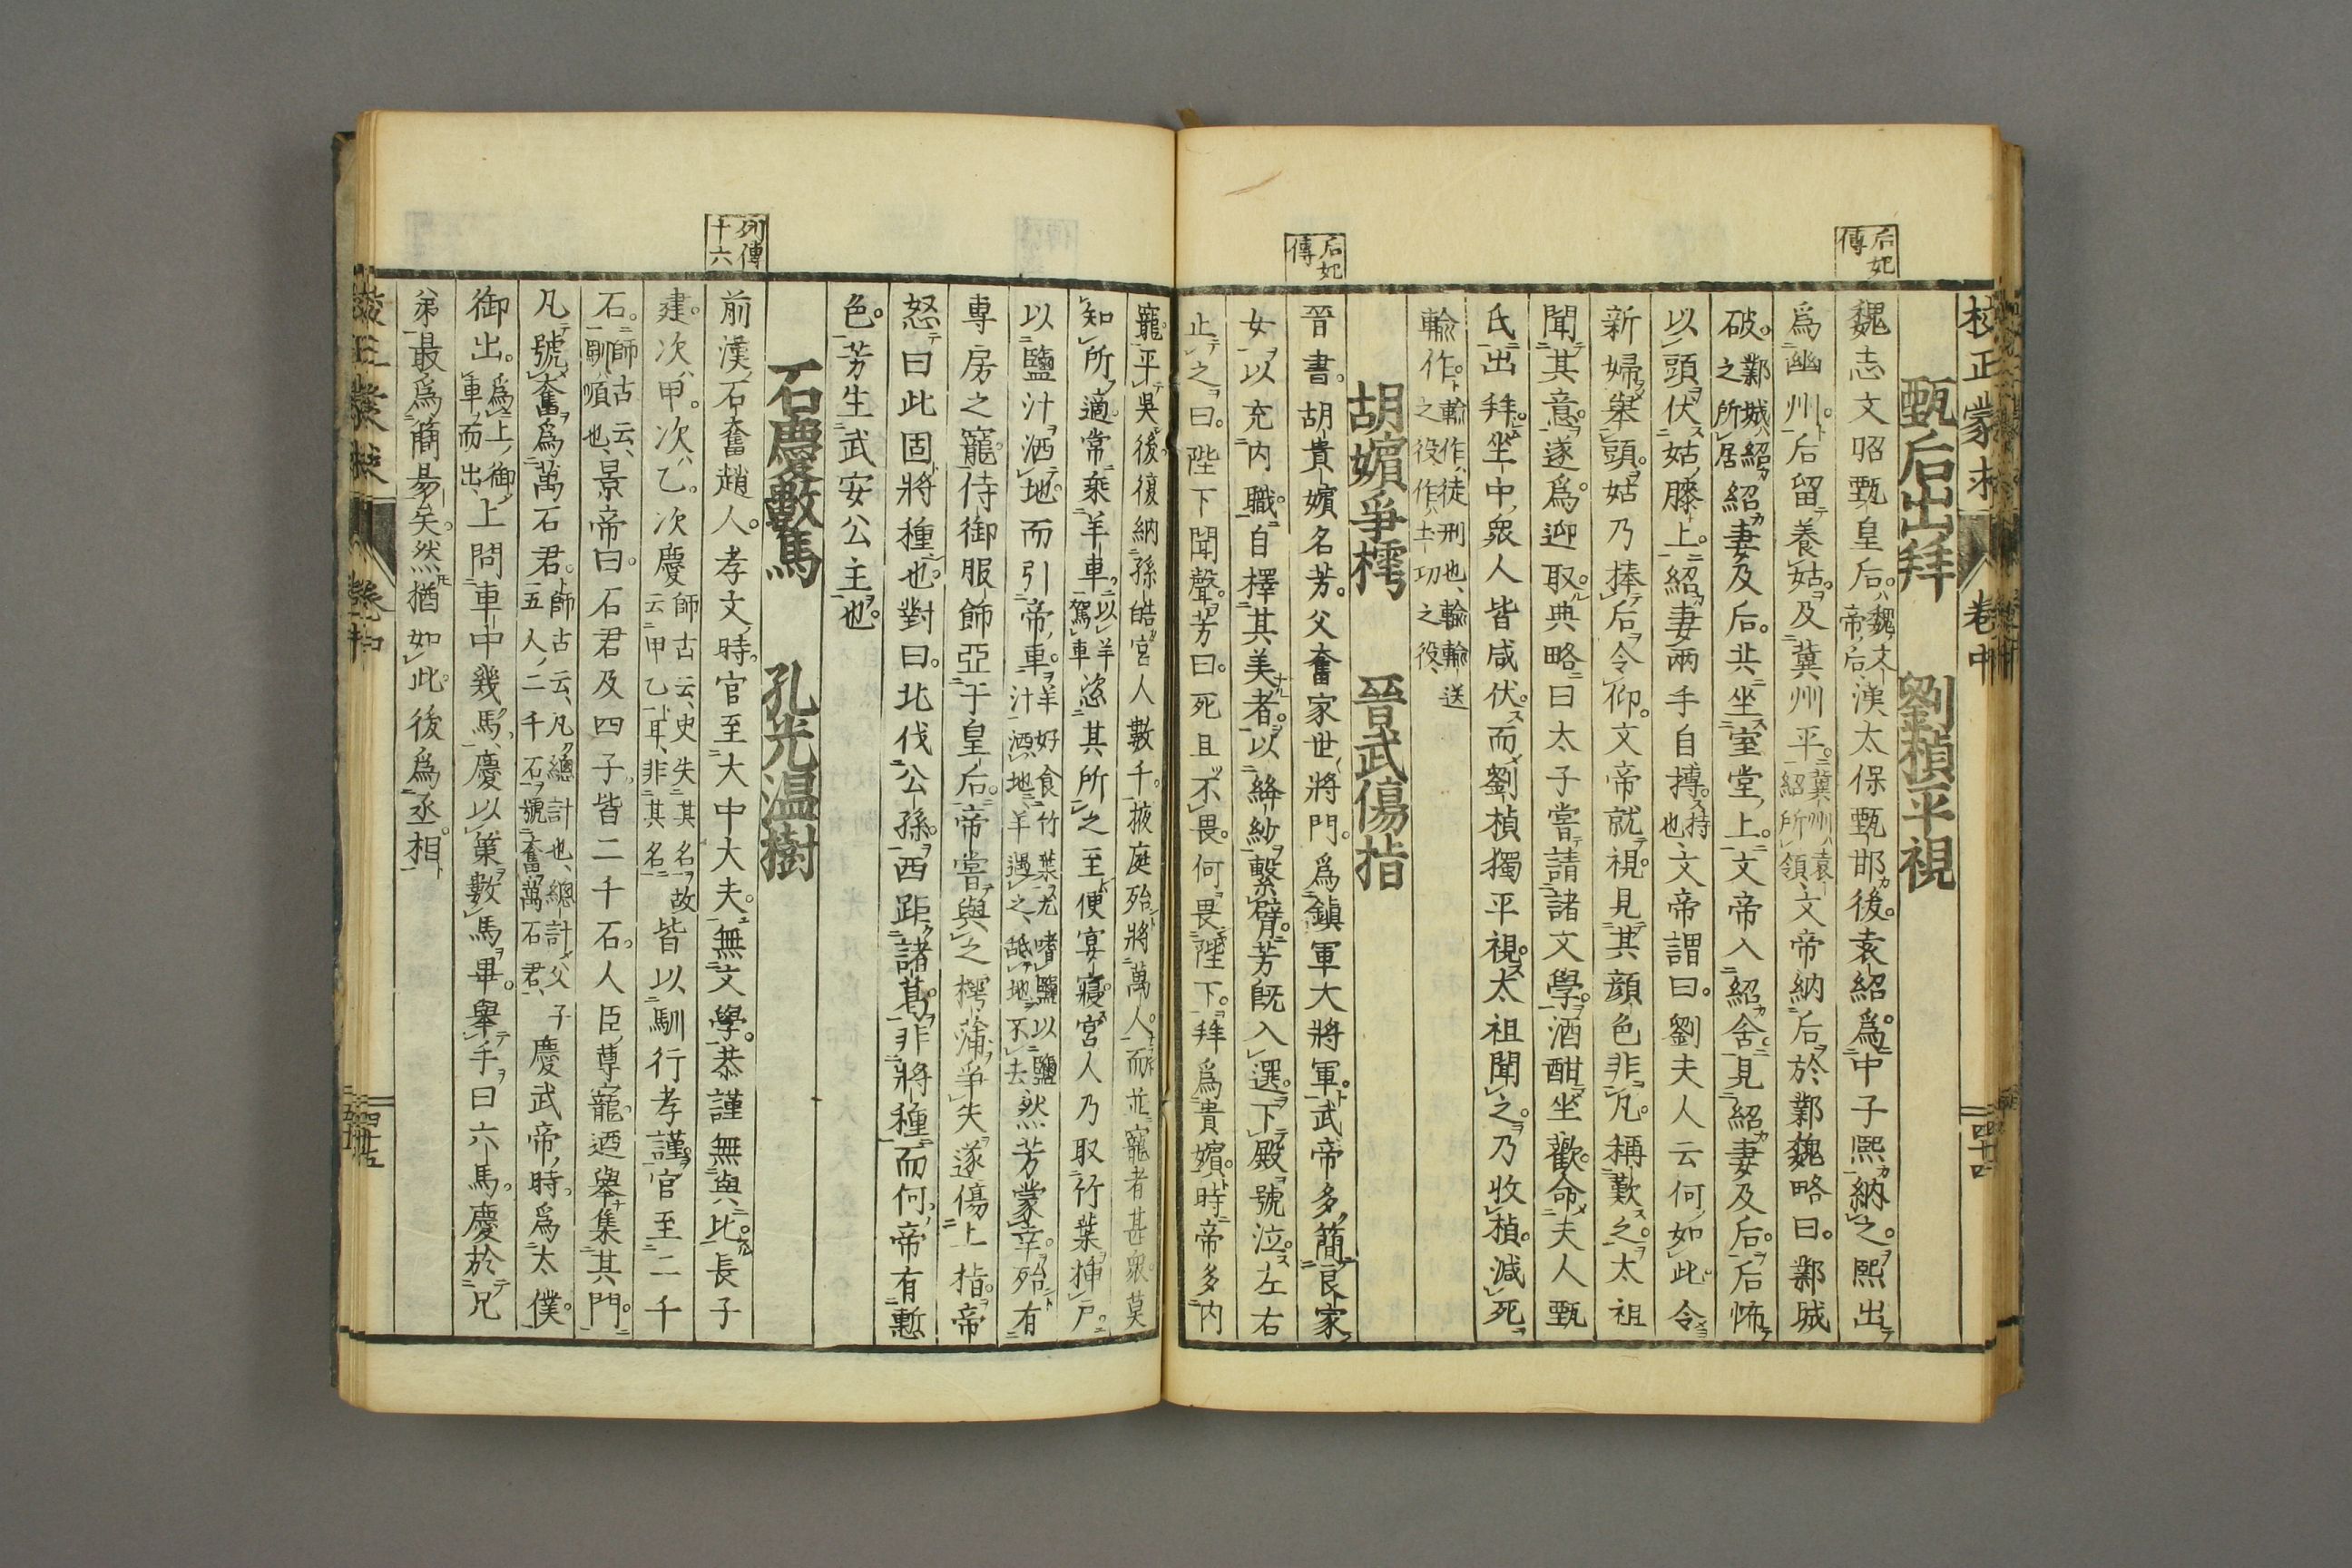 校正蒙求 卷中 四十四
后妃傳
甄后出拜 劉楨平視
魏志文昭甄皇后。魏文帝后漢太保甄邯後。袁紹爲中子熙納之。熙出
爲幽州。后留養姑。及冀州平。冀州袁紹所領文帝納后於鄴魏略曰。鄴城
破。鄴城紹之所居紹妻及后。共坐室堂上。文帝入紹舍。見紹妻及后。后怖
以頭伏姑膝上。紹妻兩手自搏。持也文帝謂曰。劉夫人云何如此令
新婦舉頭。姑乃捧后令仰。文帝就視。見其顔色非凡。稱歎之。太祖
聞其意。遂爲迎取。典略曰太子嘗請諸文學。酒酣坐歡。命夫人甄
氏出拜。坐中衆人皆咸伏。而劉楨獨平視。太祖聞之。乃收楨。減死
輸作。輸作徒刑也輸輸送之役作土功之役
胡嬪爭樗 晉武傷指
后妃傳
晉書。胡貴嬪名芳。父奮家世將門。爲鎭軍大將軍。武帝多簡良家
女以充內職。自擇其美者。以絳紗繫臂。芳旣入選。下殿號泣。左右
止之曰。陛下聞聲。芳曰。死且不畏。何畏陛下。拜爲貴嬪。時帝多內
寵。平吳後復納孫皓宮人數千。掖庭殆將萬人。而並寵者甚衆。莫
知所適常乘羊車。以羊駕車恣其所之至便宴寢。宮人乃取竹葉揷戶。
以鹽汁洒地而引帝車。羊好食竹葉尤嗜鹽以鹽汁洒地羊遇之舐地不去然芳蒙幸。殆有
專房之寵。侍御服飾亞于皇后。帝嘗與之樗蒲。爭失遂傷上指。帝
怒曰此固將種也。對曰。北伐公孫。西距諸葛。非將種而何。帝有慙
色。芳生武安公主也。
石慶數馬 孔光温樹
列傳十六
前漢石奮趙人。孝文時。官至大中大夫。無文學。恭謹無與比。長子
建。次甲。次乙。次慶師古云史失其名故云甲乙耳非其名皆以馴行孝謹。官至二千
石。師古云馴順也景帝曰。石君及四子皆二千石。人臣尊寵迺舉集其門。
凡號奮爲萬石君。師古云凡總計也總計父子五人二千石號奮萬石君慶武帝時。爲太僕。
御出。爲上御車而出上問車中幾馬。慶以策數馬畢。舉手曰六馬。慶於兄
弟最爲簡易矣。然猶如此。後爲丞相。